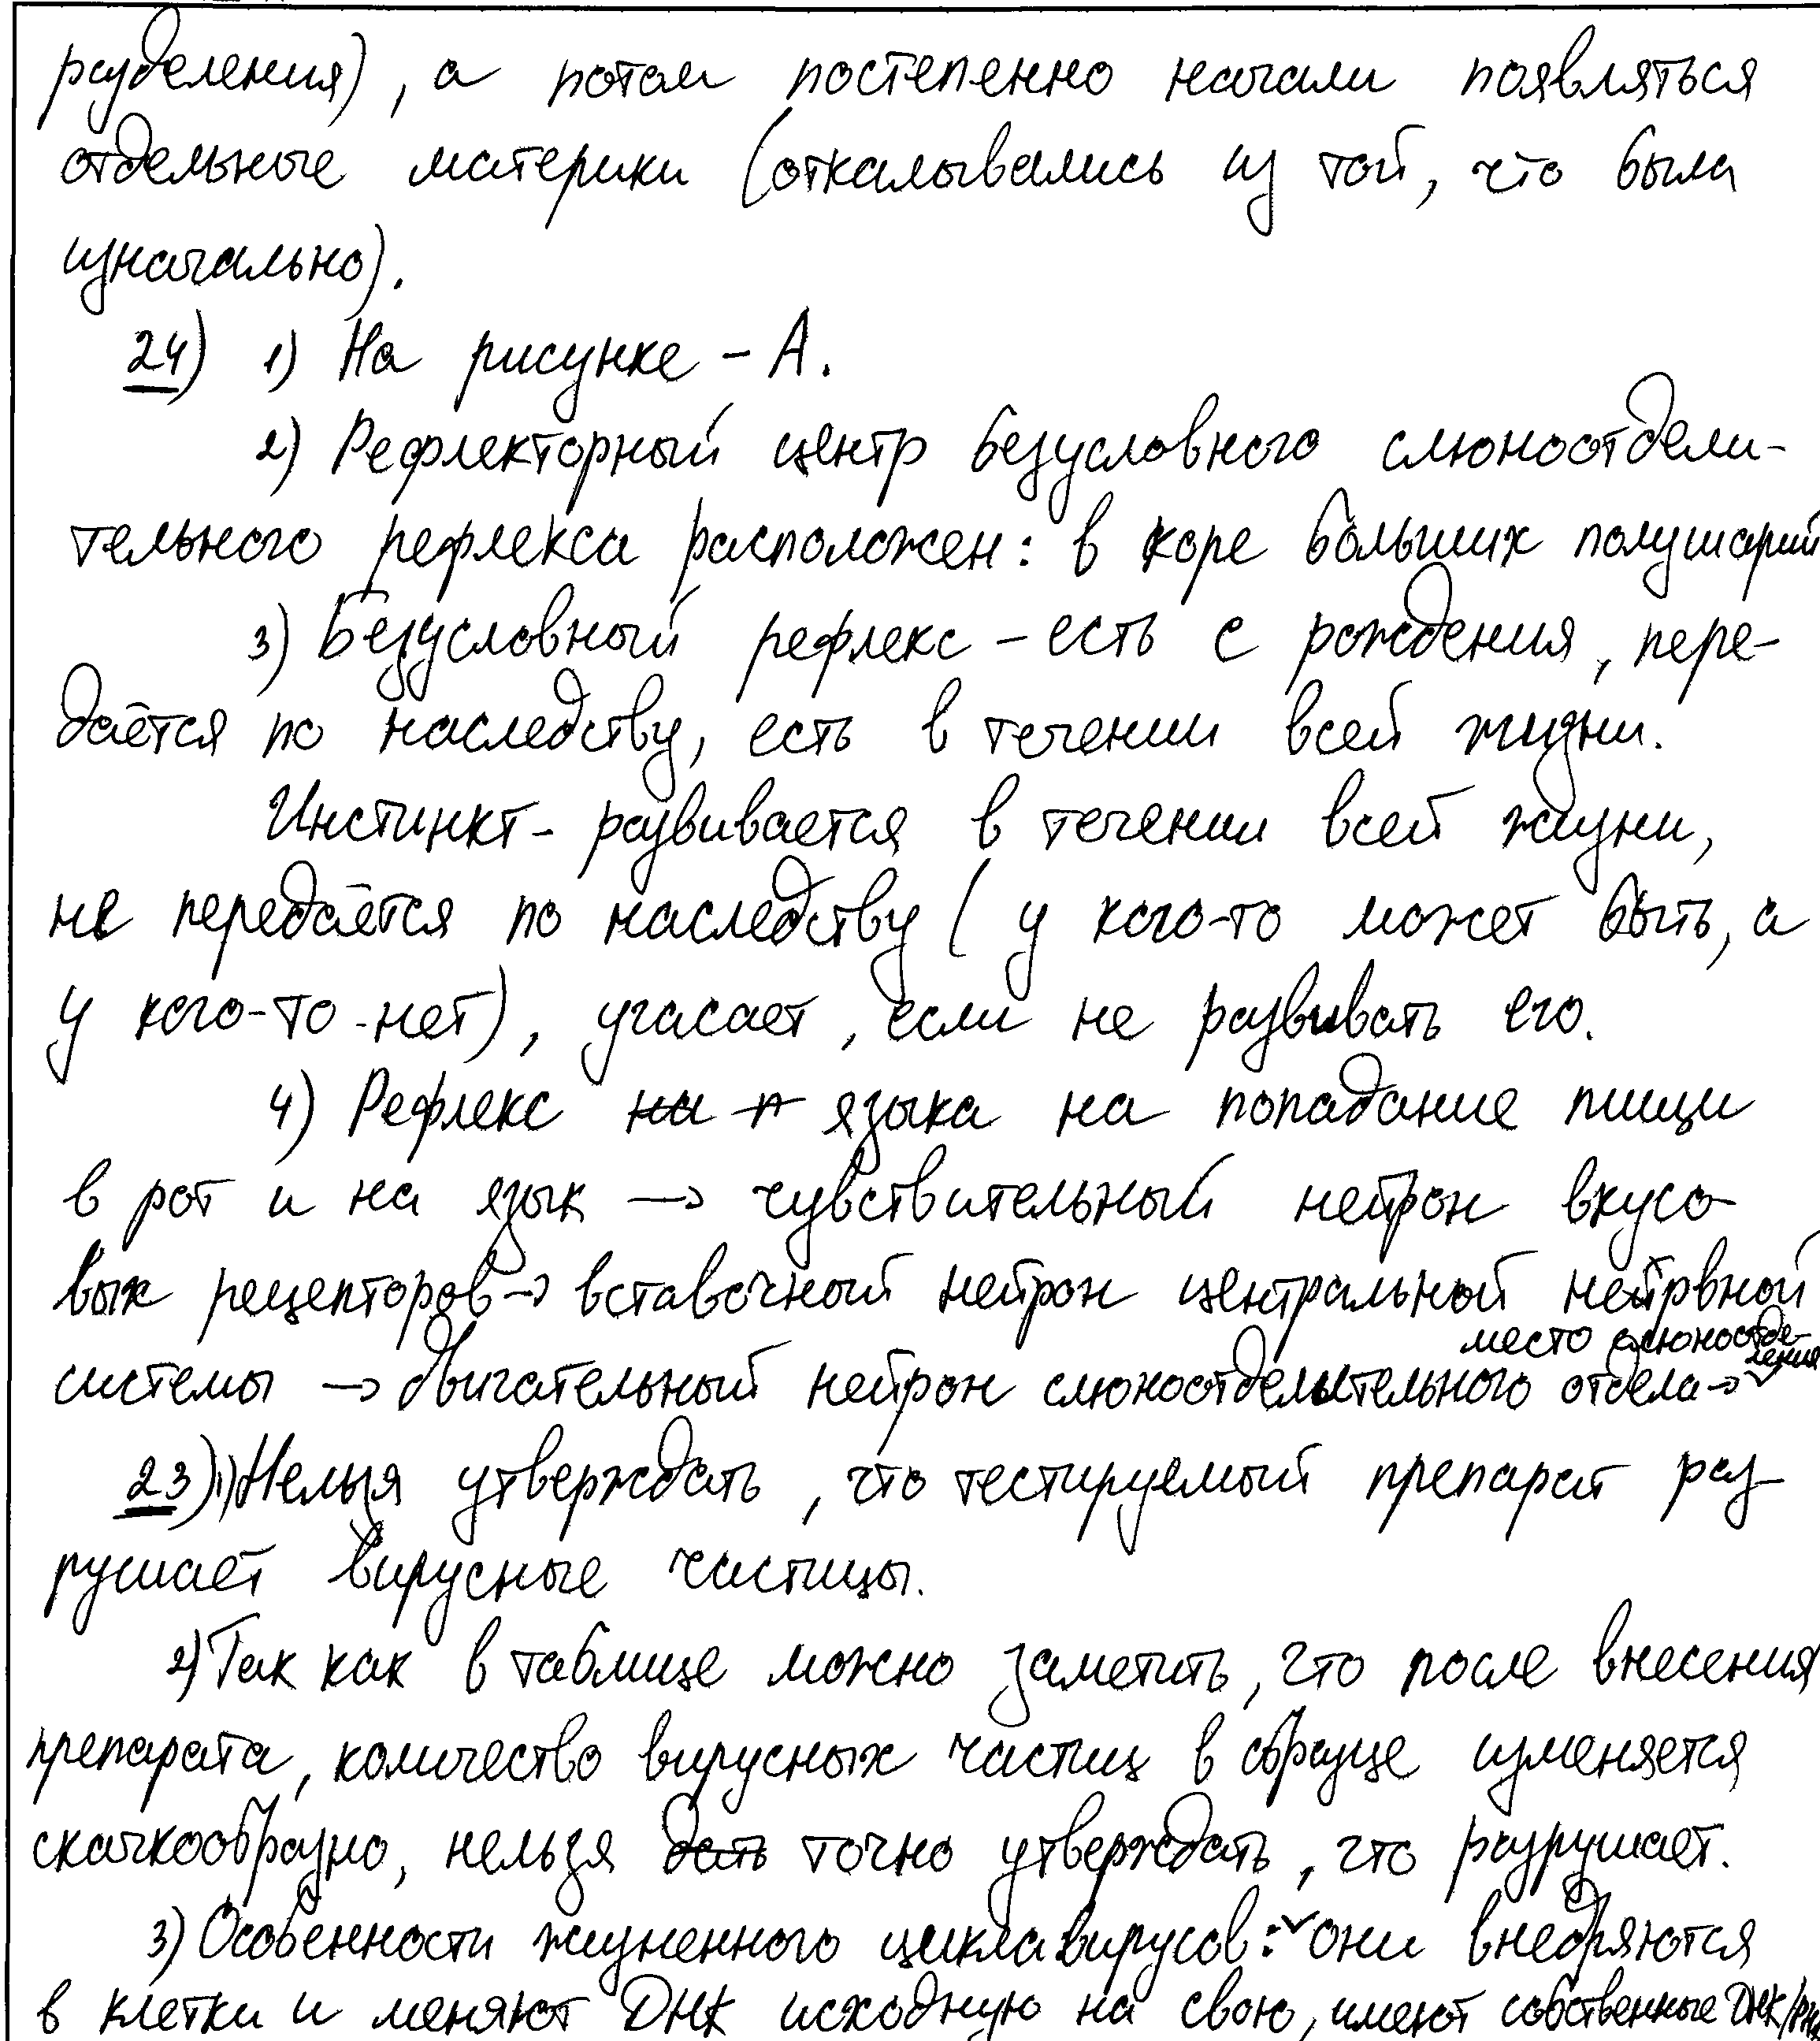 разделения), а потом постепенно начали появляться
отдельные материки (откалывались из той, что была
изначально).
24) 1) На рисунке - А.
2) Рефлекторный центр безусловного слюноотдели-
тельного рефлекса расположен: в коре больших полушарий
3) Безусловный рефлекс - есть с рождения, пере-
даётся по наследству, есть в течении всей жизни.
Инстинкт - развивается в течении всей жизни,
не передаётся по наследству (у кого-то может быть, а
у кого-то - нет), угасает, если не развивать его.
4) Рефлекс на п языка на попадание пищи
в рот и на язык → чувствительный нейрон вкусо-
вых рецепторов → вставочный нейрон центральной нейрвной
место слюноотде-
ления
системы → двигательный нейрон слюноотделительного отдела →
23) 1) Нельзя утверждать, что тестируемый препарат раз-
рушает вирусные частицы.
2) Так как в таблице можно заметить, что после внесения
препарата, количество вирусных частиц в образце изменяется
скачкообразно, нельзя дать точно утверждать, что разрушает.
3) Особенности жизненного цикла вирусов: они внедряются
в клетки и меняют ДНК исходную на свою, имеют собственные ДНК/РНК